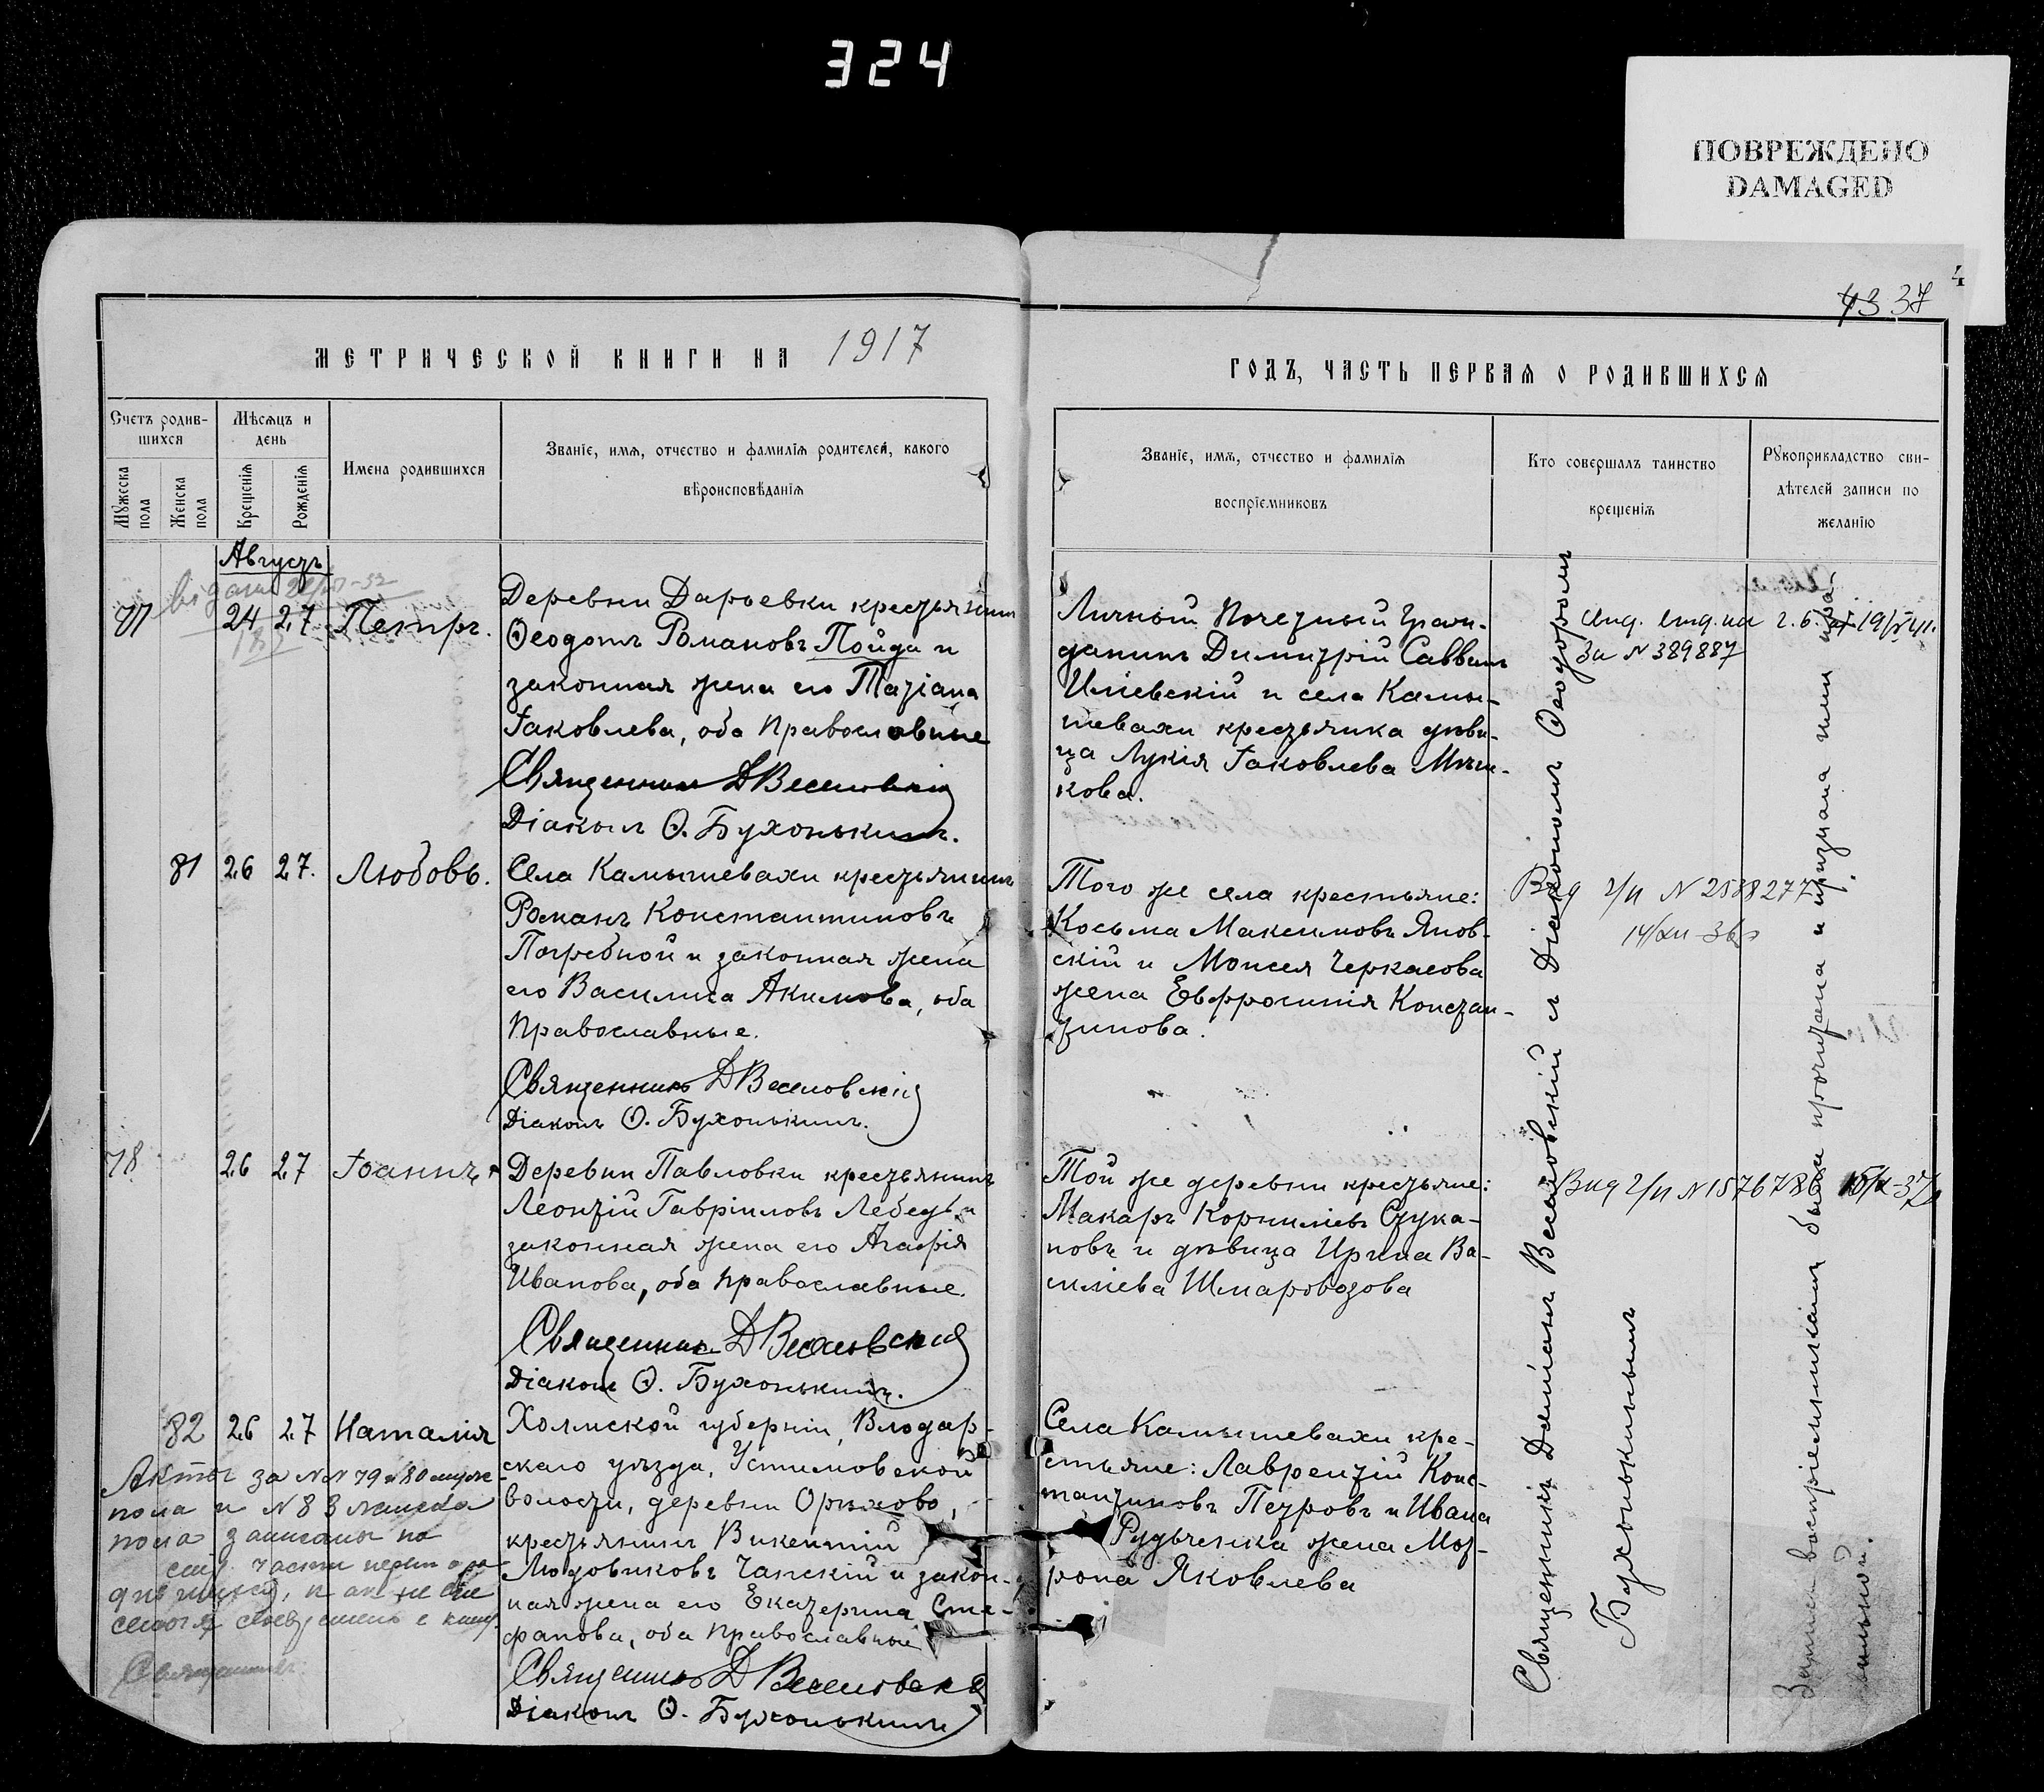 324
ПОВРЕЖДЕНО
DAMAGED
4
43 37
МЕТРИЧЕСКОЙ КНИГИ НА 1917
ГОДЪ, ЧАСТЬ ПЕРВАЯ О РОДИВШИХСЯ
Счетъ родив-
шихся
Мужеска пола
Женска пола
Мѣсяцъ и
день
Крещенія
Рожденія
Имена родившихся
Званіе, имя, отчество и фамилія родителей, какого
вѣроисповѣданія
Званіе, имя, отчество и фамилія
воспріемниковъ
Кто совершалъ таинство
крещенія
Рукоприкладство сви-
дѣтелей записи по
желанію
Августъ
77 24 27 Петръ.
Деревни Дарьевки крестьянинъ
Ѳеодотъ Романовъ Пойда и
законная жена его Татіана
Іаковлева, оба православные
Священникъ Д Веселовскій
Діаконъ Ѳ. Бухонькинъ.
Личный Почетный Граж-
данинъ Димитрій Саввинъ
Иліевскій и села Камы-
шевахи крестьянка дѣви-
ца Лукія Іаковлева
кова.
За № 389887
81 26 27. Любовь.
Села Камышевахи крестьянинъ
Романъ Константиновъ
Погребной и законная жена
его Василиса Акимова, оба
православные.
Священникъ Д Веселовскій
Діаконъ Ѳ. Бухонькинъ.
Того же села крестьяне:
Косьма Максимовъ Янов-
скій и Моисея Черкасова
жена Евфросинія Констан-
тинова.
78 26 27 Іоаннъ
Деревни Павловки крестьянинъ
Леонтій Гавріиловъ Лебедь и
законная жена его Агафія
Иванова, оба православные.
Священникъ Д Веселовскій
Діаконъ Ѳ. Бухонькинъ.
Той же деревни крестьяне:
Макаръ Корниліевъ Стука-
новъ и дѣвица Ирина Ва-
силіева Шмаровозова
82 26 27 Наталія
Холмской губерніи, Влодав-
скаго уѣзда, Устимовской
волости, деревни Орѣхово,
крестьянинъ Викентій
Людовиковъ Чапскій и закон-
ная жена его Екатерина Сте-
фанова, оба православные
Священникъ Д Веселовскій
Діаконъ Ѳ. Бухонькинъ
Села Камышевахи кре-
стьяне: Лаврентій Конс-
тантиновъ Петровъ и Ивана
Рудченка жена Мат-
рона Яковлева
Акты за №№ 79 и 80 муж.
пола и № 83 женска
пола записаны по
Священникъ
Священникъ Даміанъ Веселовскій и Діаконъ Ѳеодоръ
Бухонькинъ